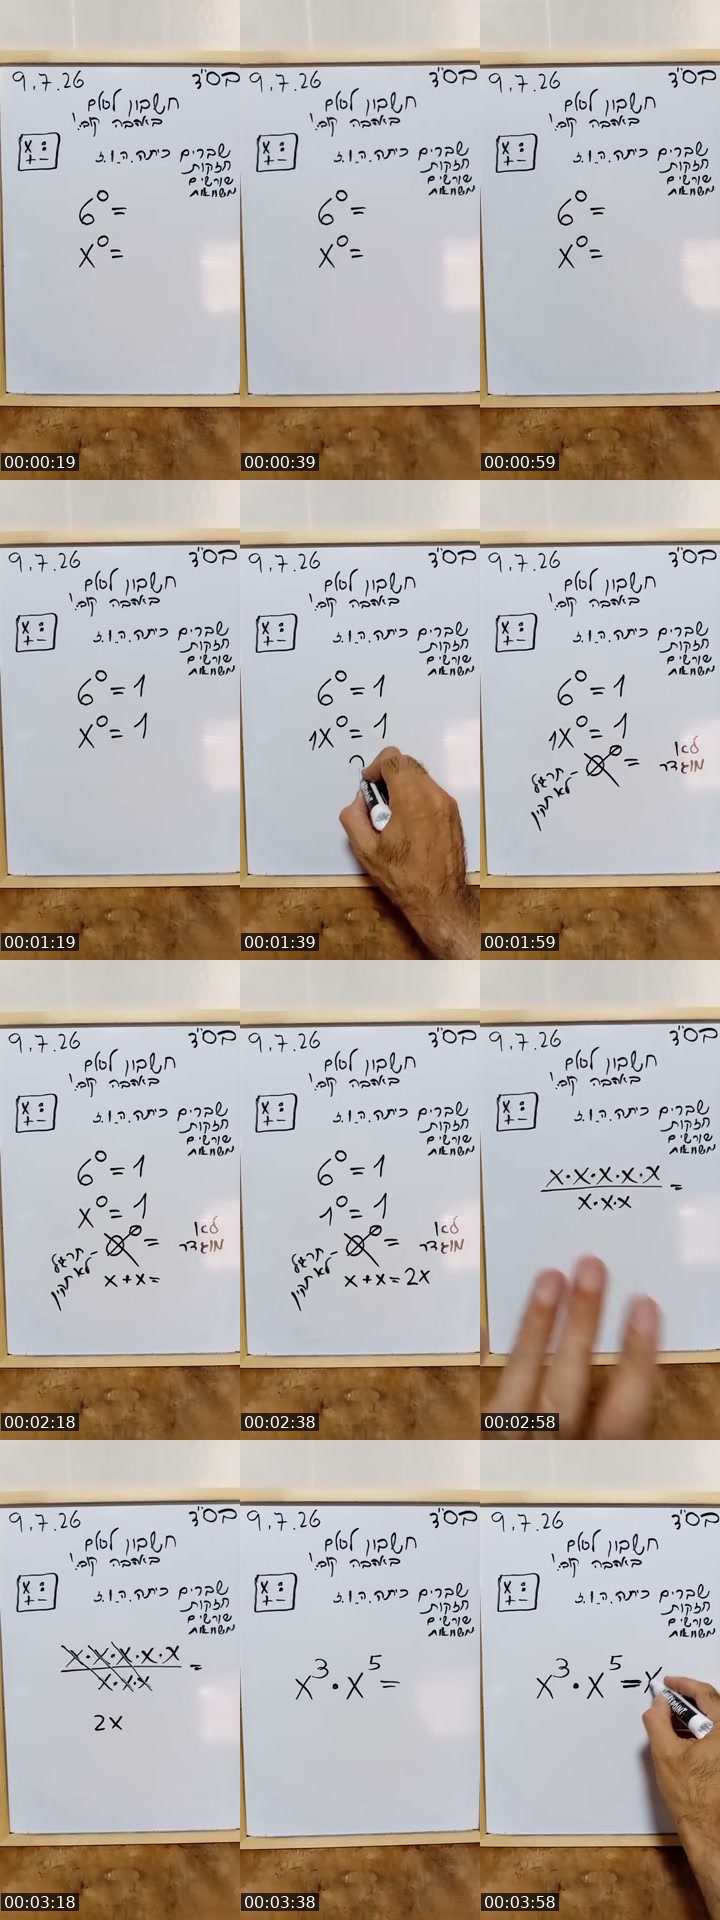 9.7.26 בס"ד
חשבון לאט
באהבה קוב.י
x : + −
שברים כיתה.ה.ו.ז
חזקות
שורשים
משוואות
6⁰=
x⁰=
00:00:19
9.7.26 בס"ד
חשבון לאט
באהבה קוב.י
x : + −
שברים כיתה.ה.ו.ז
חזקות
שורשים
משוואות
6⁰=
x⁰=
00:00:39
9.7.26 בס"ד
חשבון לאט
באהבה קוב.י
x : + −
שברים כיתה.ה.ו.ז
חזקות
שורשים
משוואות
6⁰=
x⁰=
00:00:59
9.7.26 בס"ד
חשבון לאט
באהבה קוב.י
x : + −
שברים כיתה.ה.ו.ז
חזקות
שורשים
משוואות
6⁰=1
x⁰=1
00:01:19
9.7.26 בס"ד
חשבון לאט
באהבה קוב.י
x : + −
שברים כיתה.ה.ו.ז
חזקות
שורשים
משוואות
6⁰=1
1x⁰=1
00:01:39
9.7.26 בס"ד
חשבון לאט
באהבה קוב.י
x : + −
שברים כיתה.ה.ו.ז
חזקות
שורשים
משוואות
6⁰=1
1x⁰=1
0⁰= לא
מוגדר
תרגיל
לא תקין
00:01:59
9.7.26 בס"ד
חשבון לאט
באהבה קוב.י
x : + −
שברים כיתה.ה.ו.ז
חזקות
שורשים
משוואות
6⁰=1
x⁰=1
0⁰= לא
מוגדר
תרגיל
לא תקין
x+x=
00:02:18
9.7.26 בס"ד
חשבון לאט
באהבה קוב.י
x : + −
שברים כיתה.ה.ו.ז
חזקות
שורשים
משוואות
6⁰=1
1⁰=1
0⁰= לא
מוגדר
תרגיל
לא תקין
x+x=2x
00:02:38
9.7.26 בס"ד
חשבון לאט
באהבה קוב.י
x : + −
שברים כיתה.ה.ו.ז
חזקות
שורשים
משוואות
x·x·x·x·x =
x·x·x
00:02:58
9.7.26 בס"ד
חשבון לאט
באהבה קוב.י
x : + −
שברים כיתה.ה.ו.ז
חזקות
שורשים
משוואות
x·x·x·x·x =
x·x·x
2x
00:03:18
9.7.26 בס"ד
חשבון לאט
באהבה קוב.י
x : + −
שברים כיתה.ה.ו.ז
חזקות
שורשים
משוואות
x³·x⁵=
00:03:38
9.7.26 בס"ד
חשבון לאט
באהבה קוב.י
x : + −
שברים כיתה.ה.ו.ז
חזקות
שורשים
משוואות
x³·x⁵=x
00:03:58